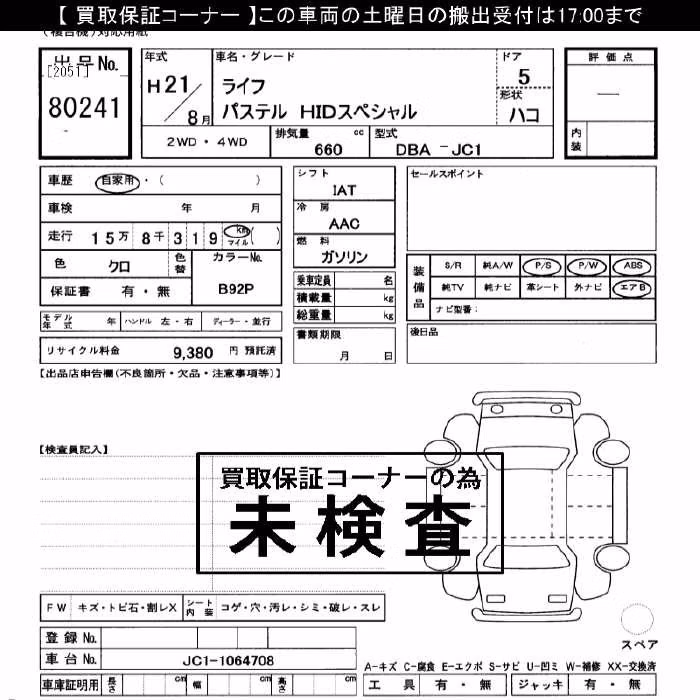 【 買取保証コーナー 】この車両の土曜日の搬出受付は17:00まで
(複合機)対応用紙
出品No.
[2051]
80241
年式
H21/8月
車名・グレード
ライフ
パステル HIDスペシャル
ドア
5
形状
ハコ
評価点
—
内装
2WD・4WD
排気量
660
cc
型式
DBA -JC1
車歴 自家用・( )
車検 年 月
走行 15万 8千 319 km マイル ( )
色 クロ 色替
カラーNo.
B92P
保証書 有・無
モデル年式 年 ハンドル 左・右 ディーラー・並行
リサイクル料金 9,380 円 預託済
シフト
IAT
冷房
AAC
燃料
ガソリン
乗車定員 名
積載量 kg
総重量 kg
書類期限
月 日
セールスポイント
装備品
S/R 純A/W P/S P/W ABS
純TV 純ナビ 革シート 外ナビ エアB
ナビ型番:
後日品
【出品店申告欄(不良箇所・欠品・注意事項等)】
【検査員記入】
買取保証コーナーの為
未検査
FW キズ・トビ石・割レX シート内装 コゲ・穴・汚レ・シミ・破レ・スレ
登録No.
車台No. JC1-1064708
車庫証明用 長さ cm 幅 cm 高さ cm
スペア
A-キズ C-腐食 E-エクボ S-サビ U-凹ミ W-補修 XX-交換済
工具 有・無 ジャッキ 有・無